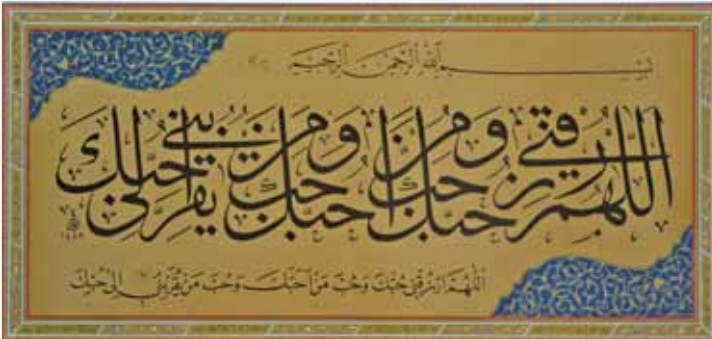 بِسْمِ اللهِ الرَّحْمٰنِ الرَّحِيمِ
اَللّٰهُمَّ ارْزُقْنِي حُبَّكَ وَحُبَّ مَنْ اَحَبَّكَ وَحُبَّ مَنْ يُقَرِّبُنِي اِلٰى حُبِّكَ
اَللّٰهُمَّ ارْزُقْنِي حُبَّكَ وَحُبَّ مَنْ اَحَبَّكَ وَحُبَّ مَنْ يُقَرِّبُنِي اِلٰى حُبِّكَ